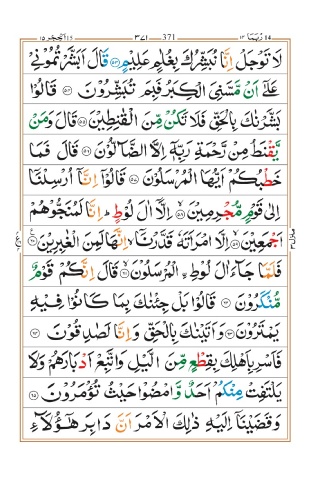 ربما ١٤ 371 ٣٧١ الحجر ١٥
لَا تَوْجَلْ اِنَّا نُبَشِّرُكَ بِغُلٰمٍ عَلِيْمٍ ﴿۵۳﴾ قَالَ اَبَشَّرْتُمُوْنِيْ
عَلٰٓى اَنْ مَّسَّنِيَ الْكِبَرُ فَبِمَ تُبَشِّرُوْنَ ﴿۵۴﴾ قَالُوْا
بَشَّرْنٰكَ بِالْحَقِّ فَلَا تَكُنْ مِّنَ الْقٰنِطِيْنَ ﴿۵۵﴾ قَالَ وَمَنْ
يَّقْنَطُ مِنْ رَّحْمَةِ رَبِّهٖٓ اِلَّا الضَّآلُّوْنَ ﴿۵۶﴾ قَالَ فَمَا
خَطْبُكُمْ اَيُّهَا الْمُرْسَلُوْنَ ﴿۵۷﴾ قَالُوْٓا اِنَّآ اُرْسِلْنَآ
اِلٰى قَوْمٍ مُّجْرِمِيْنَ ﴿۵۸﴾ اِلَّآ اٰلَ لُوْطٍ ؕ اِنَّا لَمُنَجُّوْهُمْ
اَجْمَعِيْنَ ﴿۵۹﴾ اِلَّا امْرَاَتَهٗ قَدَّرْنَآ ۙ اِنَّهَا لَمِنَ الْغٰبِرِيْنَ ﴿۶۰﴾
فَلَمَّا جَآءَ اٰلَ لُوْطِ ۨالْمُرْسَلُوْنَ ﴿۶۱﴾ قَالَ اِنَّكُمْ قَوْمٌ
مُّنْكَرُوْنَ ﴿۶۲﴾ قَالُوْا بَلْ جِئْنٰكَ بِمَا كَانُوْا فِيْهِ
يَمْتَرُوْنَ ﴿۶۳﴾ وَاَتَيْنٰكَ بِالْحَقِّ وَاِنَّا لَصٰدِقُوْنَ ﴿۶۴﴾
فَاَسْرِ بِاَهْلِكَ بِقِطْعٍ مِّنَ الَّيْلِ وَاتَّبِعْ اَدْبَارَهُمْ وَلَا
يَلْتَفِتْ مِنْكُمْ اَحَدٌ وَّامْضُوْا حَيْثُ تُؤْمَرُوْنَ ﴿۶۵﴾
وَقَضَيْنَآ اِلَيْهِ ذٰلِكَ الْاَمْرَ اَنَّ دَابِرَ هٰٓؤُلَآءِ